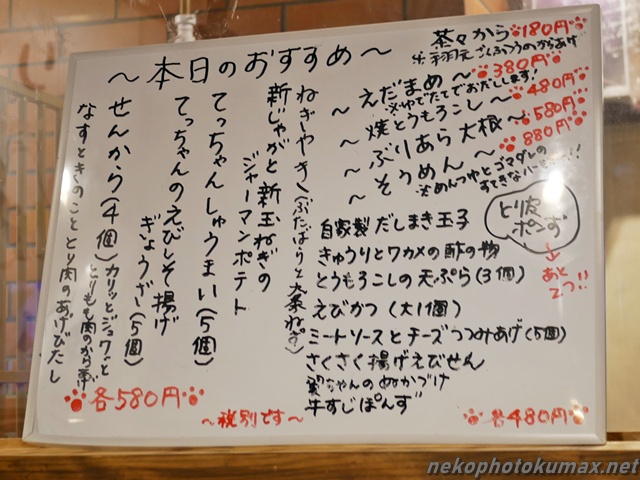 ～本日のおすすめ～
茶々から 180円
～えだまめ～ 380円
※ゆでたてでおだしします!
～焼とうもろこし～ 480円
～ぶりあら大根～ 580円
～そうめん～ 880円
※めんつゆとゴマダレの
とり皮
ポンず
→あと
2つ!!
ねぎやき(ぶたばらと大葉ねぎ)
新じゃがと新玉ねぎの
ジャーマンポテト
てっちゃんしゅうまい(5個)
てっちゃんのえびしそ揚げ
ぎょうざ(5個)
せんから(4個)カリッとジュワッと
とりもも肉のから揚げ
なすときのこととり肉のあげびたし
各580円
自家製だしまき玉子
きゅうりとワカメの酢の物
とうもろこしの天ぷら(3個)
えびかつ(大1個)
ミートソースとチーズつつみあげ(5個)
さくさく揚げえびせん
ちゃんのぬかづけ
牛すじぽんず
各480円
～税別です～
nekophotokumax.net